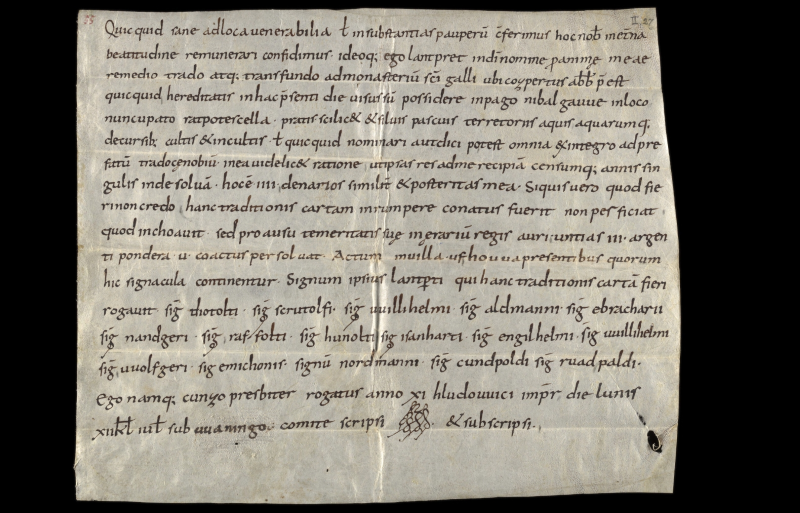 33
II, 27
Quicquid sane ad loca venerabilia ł in substantias pauperū cferimus hoc nob in et̄na
beatitudine remunerari confidimus · ideoq; ego lantpret in dī nomine p animę meae
remedio trado atq; transfundo ad monasteriū sc̄i galli ubi cozpertus abb p̄ est
quicquid hereditatis in hac p̄senti die visus sū possidere in pago nibalgauve in loco
nuncupato ratpotescella · pratis scilic& & silvis pascuis terretoriis aquis aquarumq;
decursib; cultis & incultis · ł quicquid nominari aut dici potest omnia & integro ad pre
fatū trado cęnobiū in ea videlic& ratione, ut ipsas res ad me recipiā censumq; annis sin
gulis inde solvā · hoc ē IIII, denarios similit̄ & posteritas mea · Siquis vero quod fie
ri non credo, hanc traditionis cartam inrumpere conatus fuerit non perficiat ·
quod inchoavit · sed pro ausu temeritatis suę in erariū regis auri untias III · argen
ti pondera V · coactus persolvat · Actum in villa ufhova presentibus quorum
hic signacula continentur · Signum ipsius lantp̄ti qui hanc traditionis cartā fieri
rogavit siḡ thotolti · siḡ scrutolfi · siḡ vvillihelmi siḡ aldmanni · siḡ ebracharii
siḡ nandgeri · siḡ, raffolti · siḡ hunolti sig isanharti · siḡ engilhelmi · sig vvillihelmi
siḡ, vvolfgeri · sig emichonis · signū nordmanni · siḡ cundpoldi siḡ ruadpaldi ·
Ego namq; cunzo presbiter rogatus anno XI hludouvici imp̄r, die lunis
XII kł iuł sub vvaningo, comite scripsi & subscripsi ·